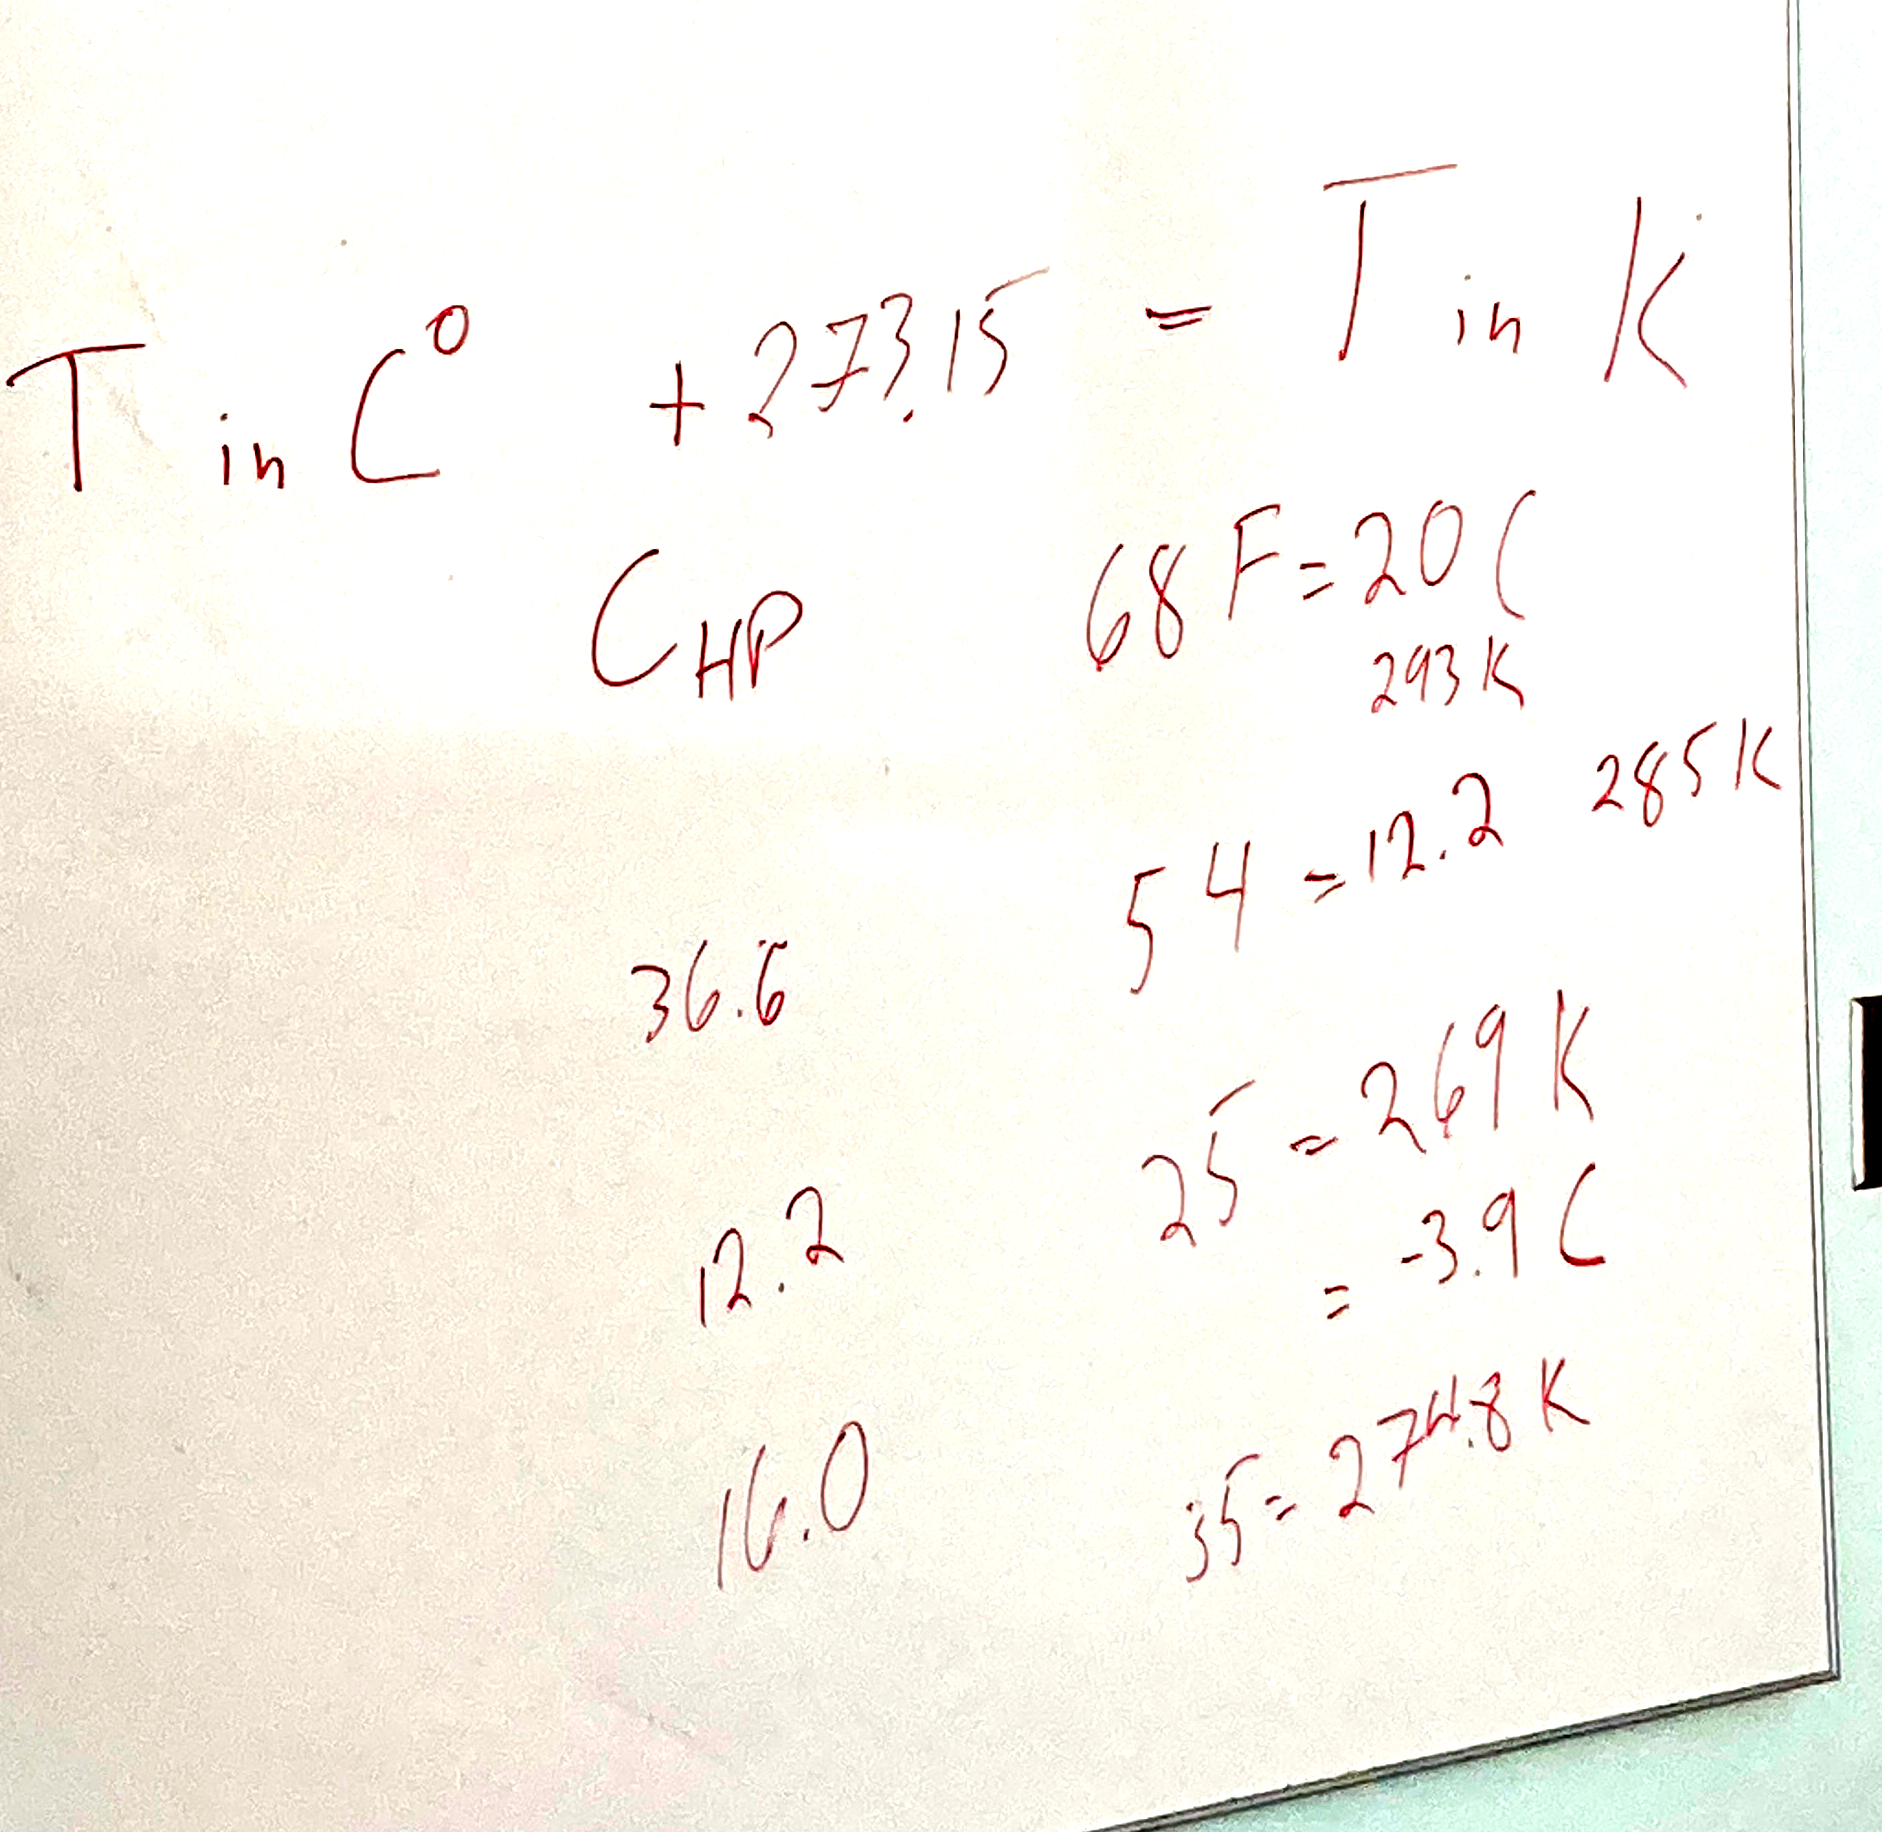 T in C° + 273.15 = T in K
C HP 68 F = 20 C
293 K
54 = 12.2 285 K
36.6
25 = 269 K
12.2
= -3.9 C
16.0 35 = 274.8 K